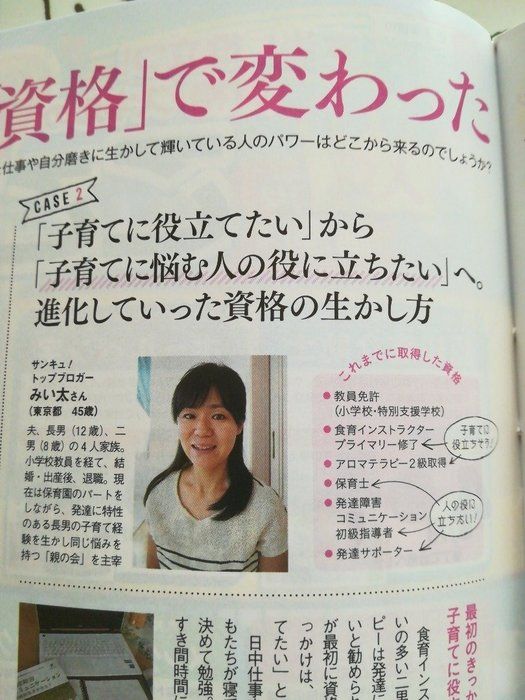 資格」で変わった
仕事や自分磨きに生かして輝いている人のパワーはどこから来るのでしょうか?
CASE 2
「子育てに役立てたい」から
「子育てに悩む人の役に立ちたい」へ。
進化していった資格の生かし方
サンキュ!
トップブロガー
みい太さん
(東京都 45歳)
夫、長男(12歳)、二
男(8歳)の4人家族。
小学校教員を経て、結
婚・出産後、退職。現
在は保育園のパートを
しながら、発達に特性
のある長男の子育て経
験を生かし同じ悩みを
持つ「親の会」を主宰
これまでに取得した資格
●教員免許
(小学校・特別支援学校)
●食育インストラクター
プライマリー修了
●アロマテラピー2級取得
●保育士
●発達障害
コミュニケーション
初級指導者
●発達サポーター
子育てに
役立ちそう!
人の役に
立ちたい!
最初のきっか
子育てに役
食育インス
いの多い二男
ピーは発達三
いと勧められ
が最初に資
っかけは、
てたい」と
日中仕事
もたちが寝
決めて勉強
すき間時間